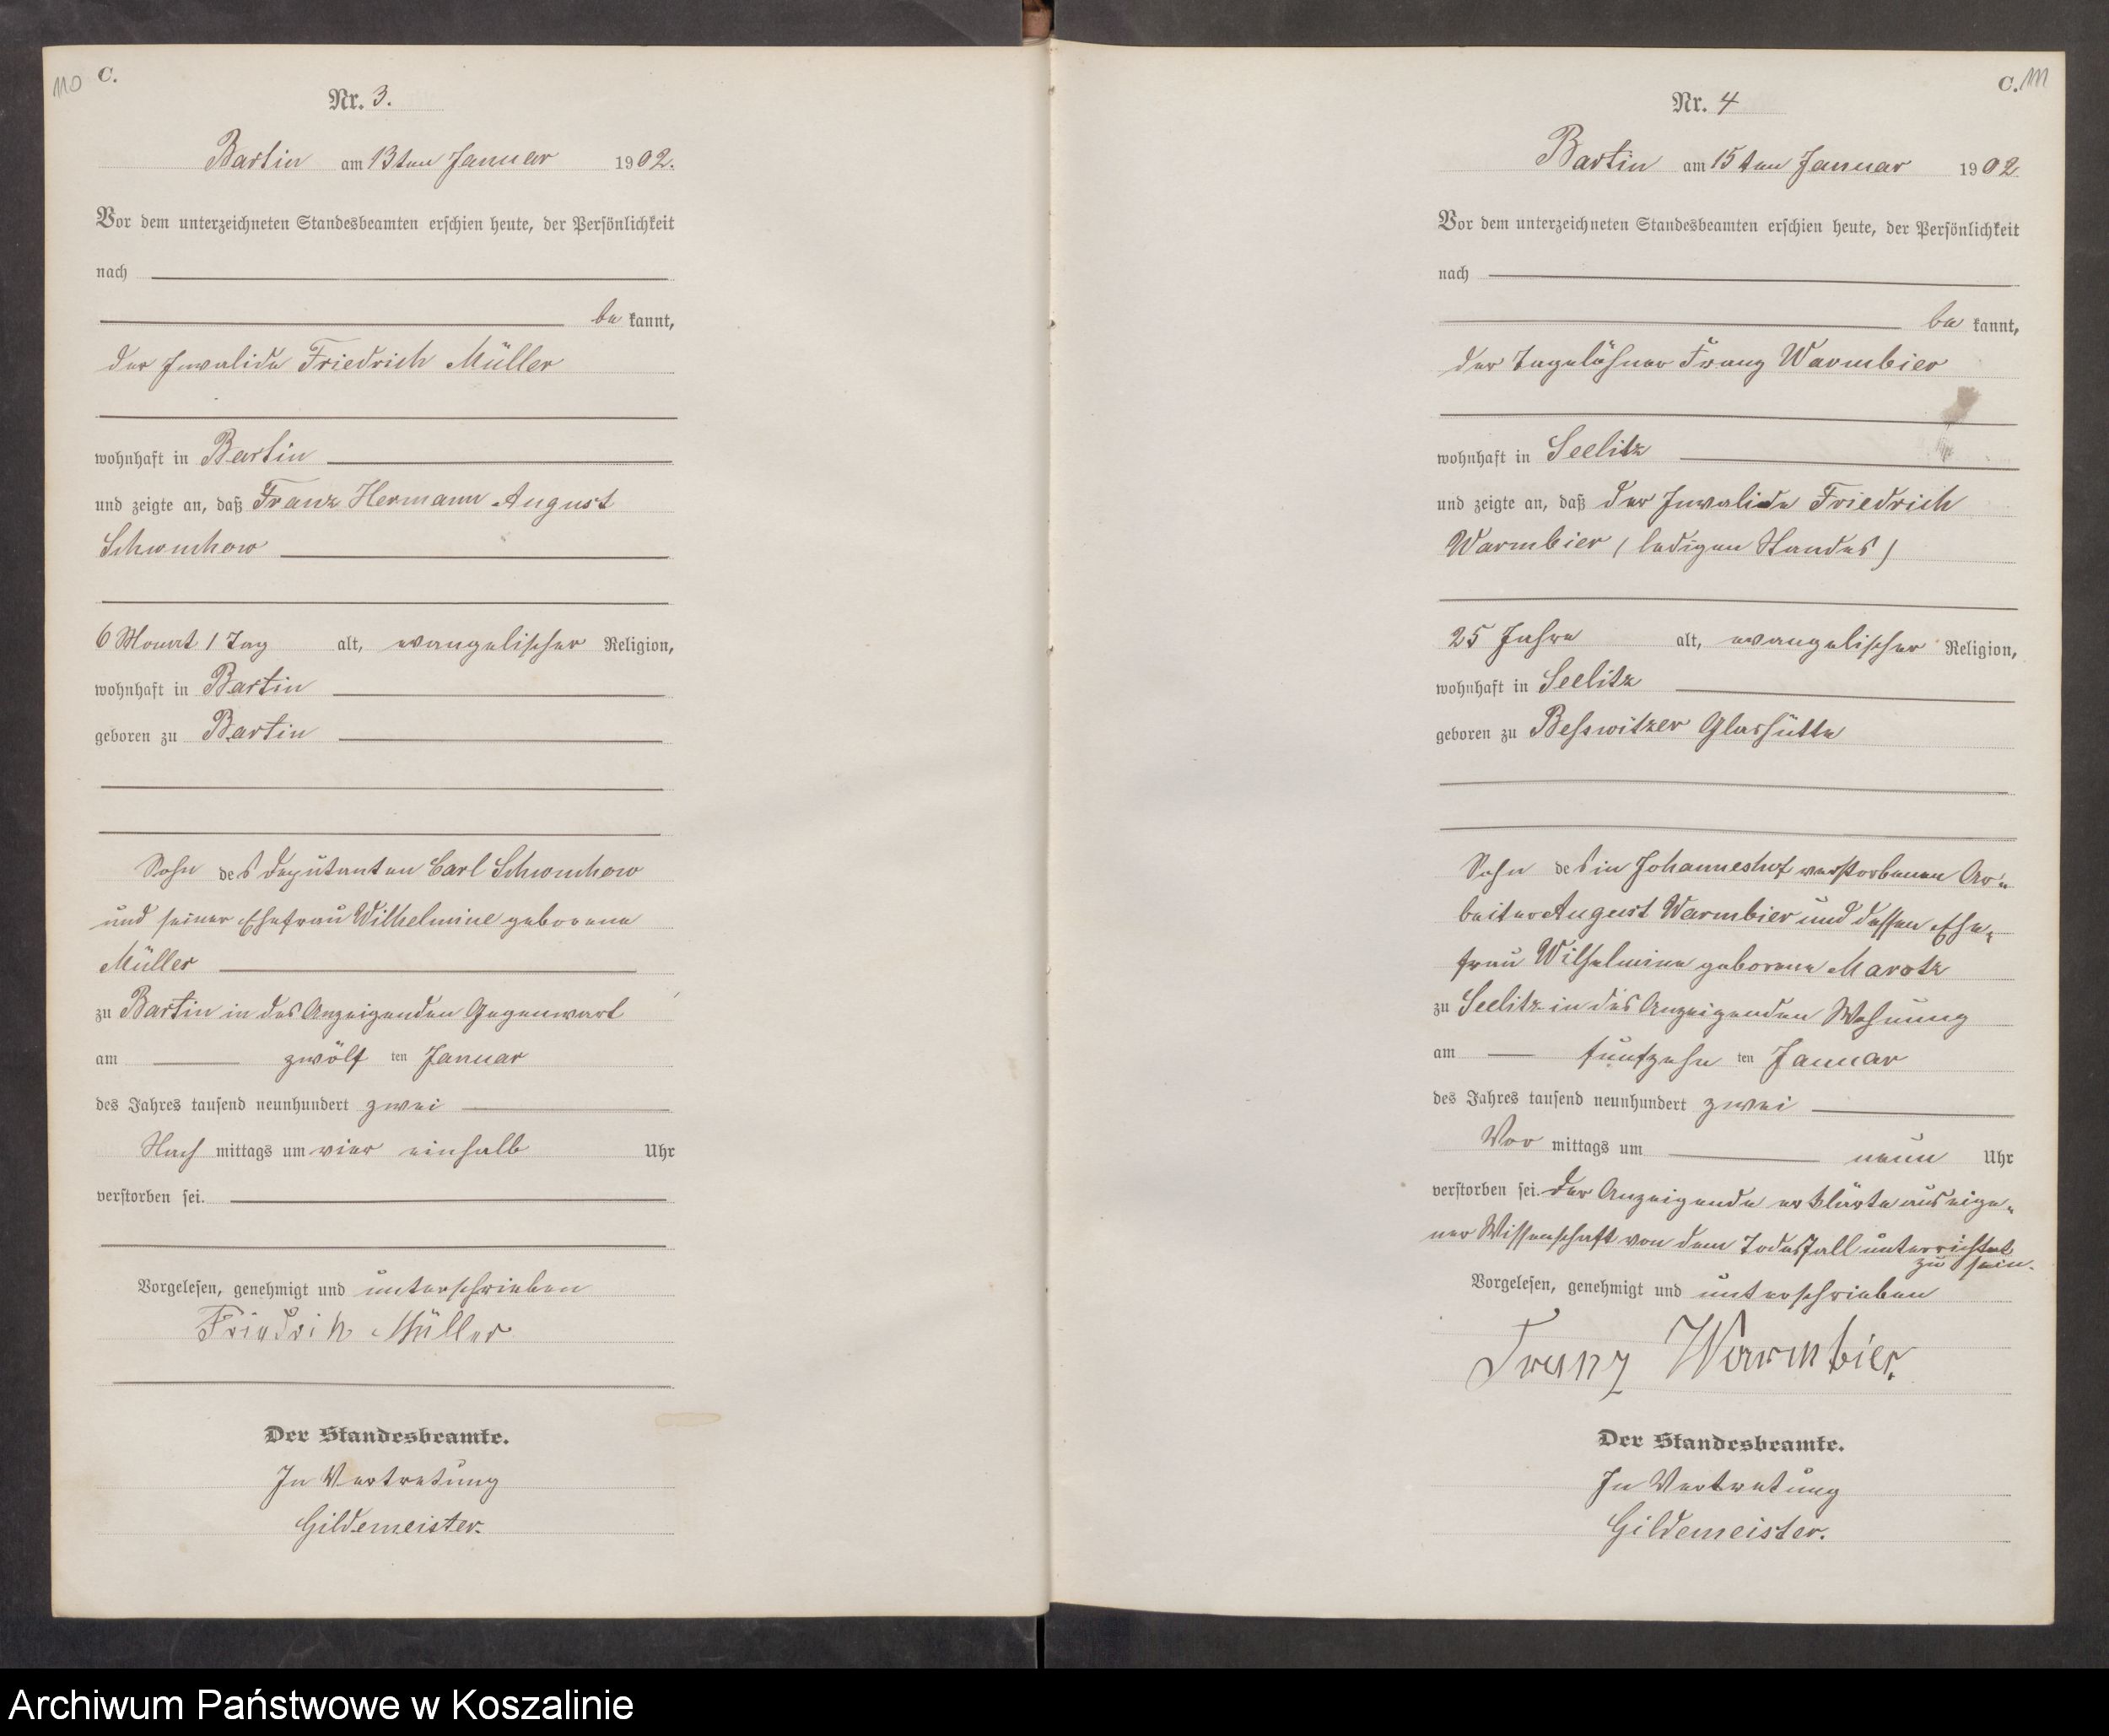 110
C.
Nr. 3.
Bartin am 13ten Januar 1902.
Vor dem unterzeichneten Standesbeamten erschien heute, der Persönlichkeit
nach
be kannt,
der Invalide Friedrich Müller
wohnhaft in Bartin
und zeigte an, daß Franz Hermann August
Schwuchow
6 Monat 1 Tag alt, evangelischer Religion,
wohnhaft in Bartin
geboren zu Bartin
Sohn des Deputanten Carl Schwuchow
und seiner Ehefrau Wilhelmine geborene
Müller
zu Bartin in des Anzeigenden Gegenwart
am zwölf ten Januar
des Jahres tausend neunhundert zwei
Nach mittags um vier einhalb Uhr
verstorben sei.
Vorgelesen, genehmigt und unterschrieben
Friedrich Müller
Der Standesbeamte.
In Vertretung
Gildemeister.
C. 111
Nr. 4
Bartin am 15ten Januar 1902
Vor dem unterzeichneten Standesbeamten erschien heute, der Persönlichkeit
nach
be kannt,
der Tagelöhner Franz Warmbier
wohnhaft in Seelitz
und zeigte an, daß der Invalide Friedrich
Warmbier (ledigen Standes)
25 Jahre alt, evangelischer Religion,
wohnhaft in Seelitz
geboren zu Besswitzer Glashütte
Sohn des in Johanneshof verstorbenen Ar-
beiter August Warmbier und dessen Ehe-
frau Wilhelmine geborene Marotz
zu Seelitz in des Anzeigenden Wohnung
am fünfzehn ten Januar
des Jahres tausend neunhundert zwei
Vor mittags um neun Uhr
verstorben sei. Der Anzeigende erklärte aus eige-
ner Wissenschaft von dem Todesfall unterrichtet
zu sein.
Vorgelesen, genehmigt und unterschrieben
Franz Warmbier.
Der Standesbeamte.
In Vertretung
Gildemeister.
Archiwum Państwowe w Koszalinie